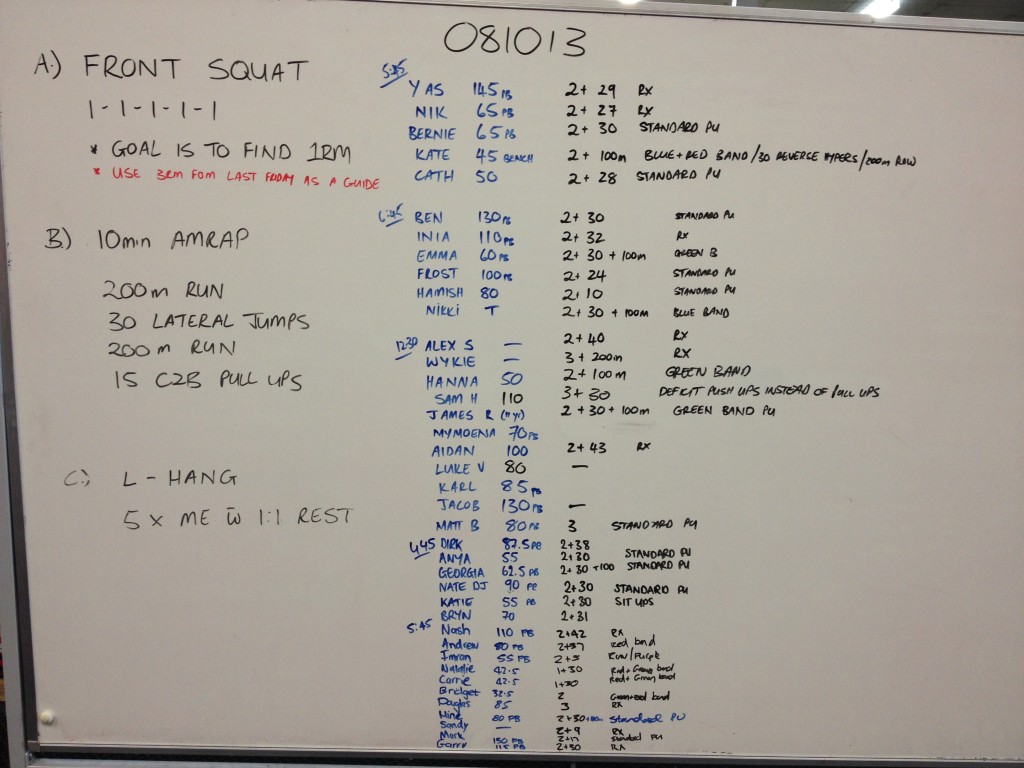 081013
A.) FRONT SQUAT
1-1-1-1-1
* GOAL IS TO FIND 1RM
* USE 3RM FOM LAST FRIDAY AS A GUIDE
B.) 10min AMRAP
200m RUN
30 LATERAL JUMPS
200m RUN
15 C2B PULL UPS
C.) L-HANG
5 x ME w 1:1 REST
5:45
YAS 145 PB 2+ 29 RX
NIK 65 PB 2+ 27 RX
BERNIE 65 PB 2+ 30 STANDARD PU
KATE 45 BENCH 2+ 100m BLUE+RED BAND/30 REVERSE HYPERS/200m ROW
CATH 50 2+ 28 STANDARD PU
6:45 BEN 130 PB 2+ 30 STANDARD PU
INIA 110 PB 2+ 32 RX
EMMA 60 PB 2+ 30 + 100m GREEN B
FROST 100 PB 2+ 24 STANDARD PU
HAMISH 80 2+ 10 STANDARD PU
NIKKI T 2+ 30 + 100m BLUE BAND
1230 ALEX S — 2+40 RX
WYKIE — 3+ 200m RX
HANNA 50 2+ 100m GREEN BAND
SAM H 110 3+ 30 DEFICIT PUSH UPS INSTEAD OF PULL UPS
JAMES R 2+30+100m GREEN BAND PU
MYMOENA 70 PB
AIDAN 100 2+ 43 RX
LUKE V 80 —
KARL 85 PB
JACOB 130 PB —
MATT B 80 PB 3 STANDARD PU
4:45 DIRK 87.5 PB 2+38
ANYA 55 2+30 STANDARD PU
GEORGIA 62.5 PB 2+ 30 +100 STANDARD PU
NATE DJ 90 PB 2+30 STANDARD PU
KATIE 55 PB 2+30 SIT UPS
BRYN 70 2+31
5:45 Nash 110 PB 2+42 RX
Andrew 80 PB 2+37 red band
Imran 55 PB 2+5 Run/Purple
Natalie 42.5 1+30 Red+Green band
Carrie 42.5 1+30 Red+Green band
Bridget 32.5 2 Green+red band
Douglas 85 3 RX
Hine 80 PB 2+30+100m Standard PU
Sandy —
Mark 150 PB 2+9 RX
Garry 115 PB 2+17 Standard PU
2+30 RX